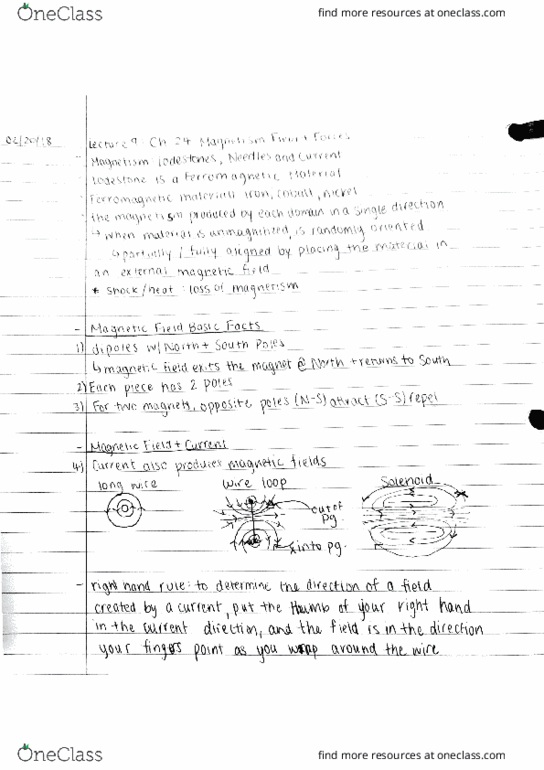 OneClass
find more resources at oneclass.com
02/20/18
Lecture 9: Ch 24 Magnetism Fields + Forces
- Magnetism lodestones, Needles and Current
lodestone is a ferromagnetic Material
- Ferromagnetic material: iron, cobalt, nickel
- the magnetism produced by each domain in a single direction
↳ when material is unmagnitized, is randomly oriented
↳ partially / fully aligned by placing the material in
an external magnetic field
* shock/heat : loss of magnetism
- Magnetic Field Basic Facts
1) dipoles w/ North + South Poles
↳ magnetic field exits the magnet @ North + returns to South
2) Each piece has 2 poles
3) For two magnets, opposite poles (N-S) attract (S-S) repel
- Magnetic Field + Current
4) Current also produces magnetic fields
long wire
wire loop
Solenoid
out of
pg.
into pg.
- right hand rule: to determine the direction of a field
created by a current, put the thumb of your right hand
in the current direction, and the field is in the direction
your fingers point as you wrap around the wire
OneClass
find more resources at oneclass.com